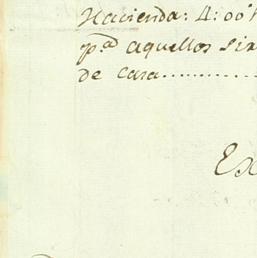 Hacienda: 4:00
pᵃ aquellos
de casa............
Ex